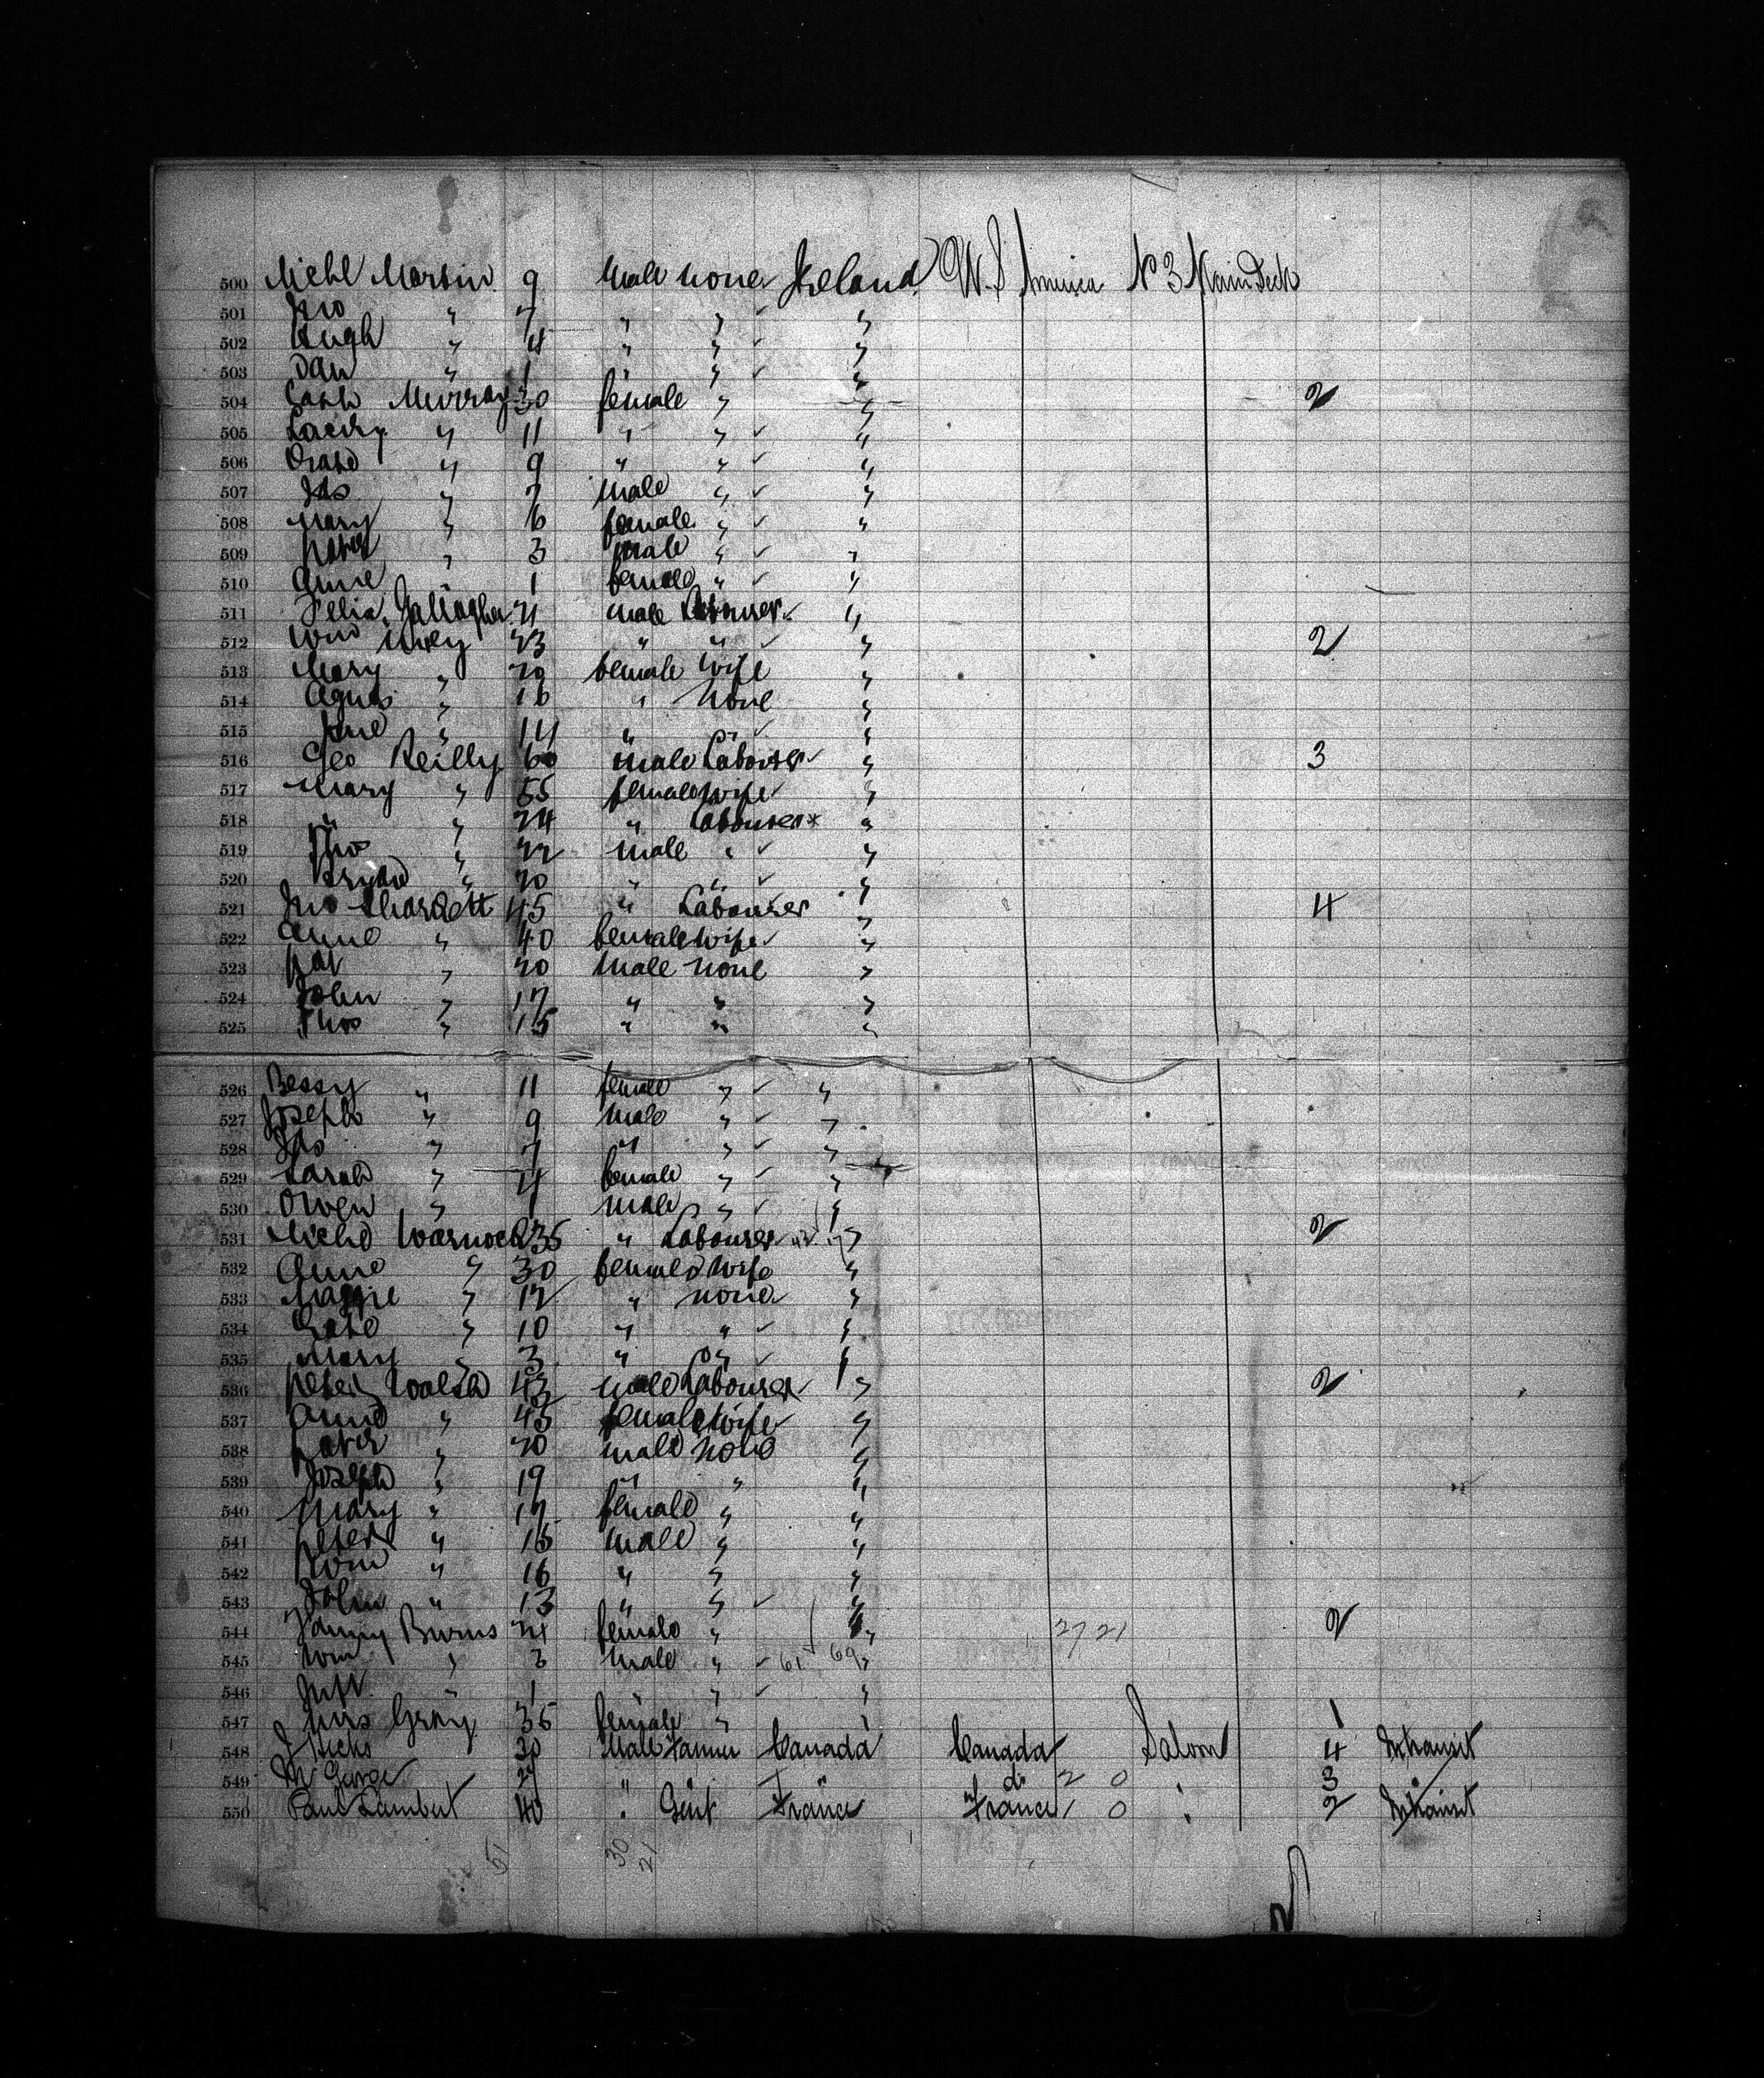 500 Michl Martin 9 Male None Ireland U.S. America No 3 Main Deck
501 Jno " 7 " " "
502 Hugh " 4 " " "
503 Dan " 1 " " "
504 Cath Murray 30 female " " 2
505 " 11 " " "
506 " 9 " " "
507 Jas " 7 male " "
508 Mary " 6 female " "
509 Peter " 3 male " "
510 Anne " 1 female " "
511 Felix Gallagher 21 male Labourer "
512 Wm 23 " " " 2
513 Mary " 20 female Wife "
514 Agnes " 16 " None "
515 Jane " 14 " " "
516 Geo Reilly 60 male Labourer " 3
517 Mary " 55 female wife "
518 " " 24 " Labourer "
519 Thos " 22 male " "
520 " 20 " " "
521 Jno 45 " Labourer " 4
522 Anne " 40 female wife "
523 Pat " 20 Male None "
524 John " 17 " " "
525 Thos " 15 " " "
526 Bessy " 11 female " "
527 Joseph " 9 male " "
528 Jas " 7 " " "
529 Sarah " 4 female " "
530 Owen " 1 male " "
531 Michl Warnock 35 " Labourer " 2
532 Anne " 30 female Wife "
533 Maggie " 12 " none "
534 " 10 " " "
535 Mary " 3 " " "
536 Peter Walsh 43 male Labourer " 2
537 Anne " 43 female wife "
538 " 20 male None "
539 Joseph " 19 " " "
540 Mary " 17 female " "
541 Peter " 16 male " "
542 Wm " 16 " " "
543 John " 13 " " "
544 Fanny Burns 24 female " " 27 21 2
545 Wm " 3 male " 61 69 "
546 " 1 " " "
547 Mrs Gray 35 female " 1
548 Hicks 30 Male Farmer Canada Canada Saloon 4 In transit
549 29 " do 2 0 3
550 Paul Lambert 40 " Gent France France 1 0 " 2 In transit
51 30 21